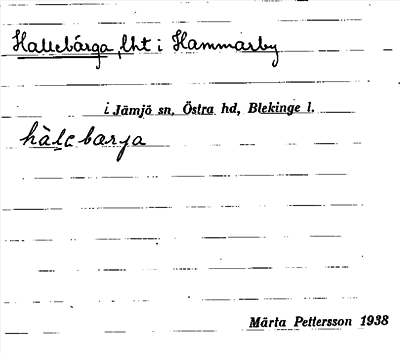 Hallebärga, lht i Hammarby
i Jämjö sn, Östra hd, Blekinge l.
hàlebarja
Märta Pettersson 1938